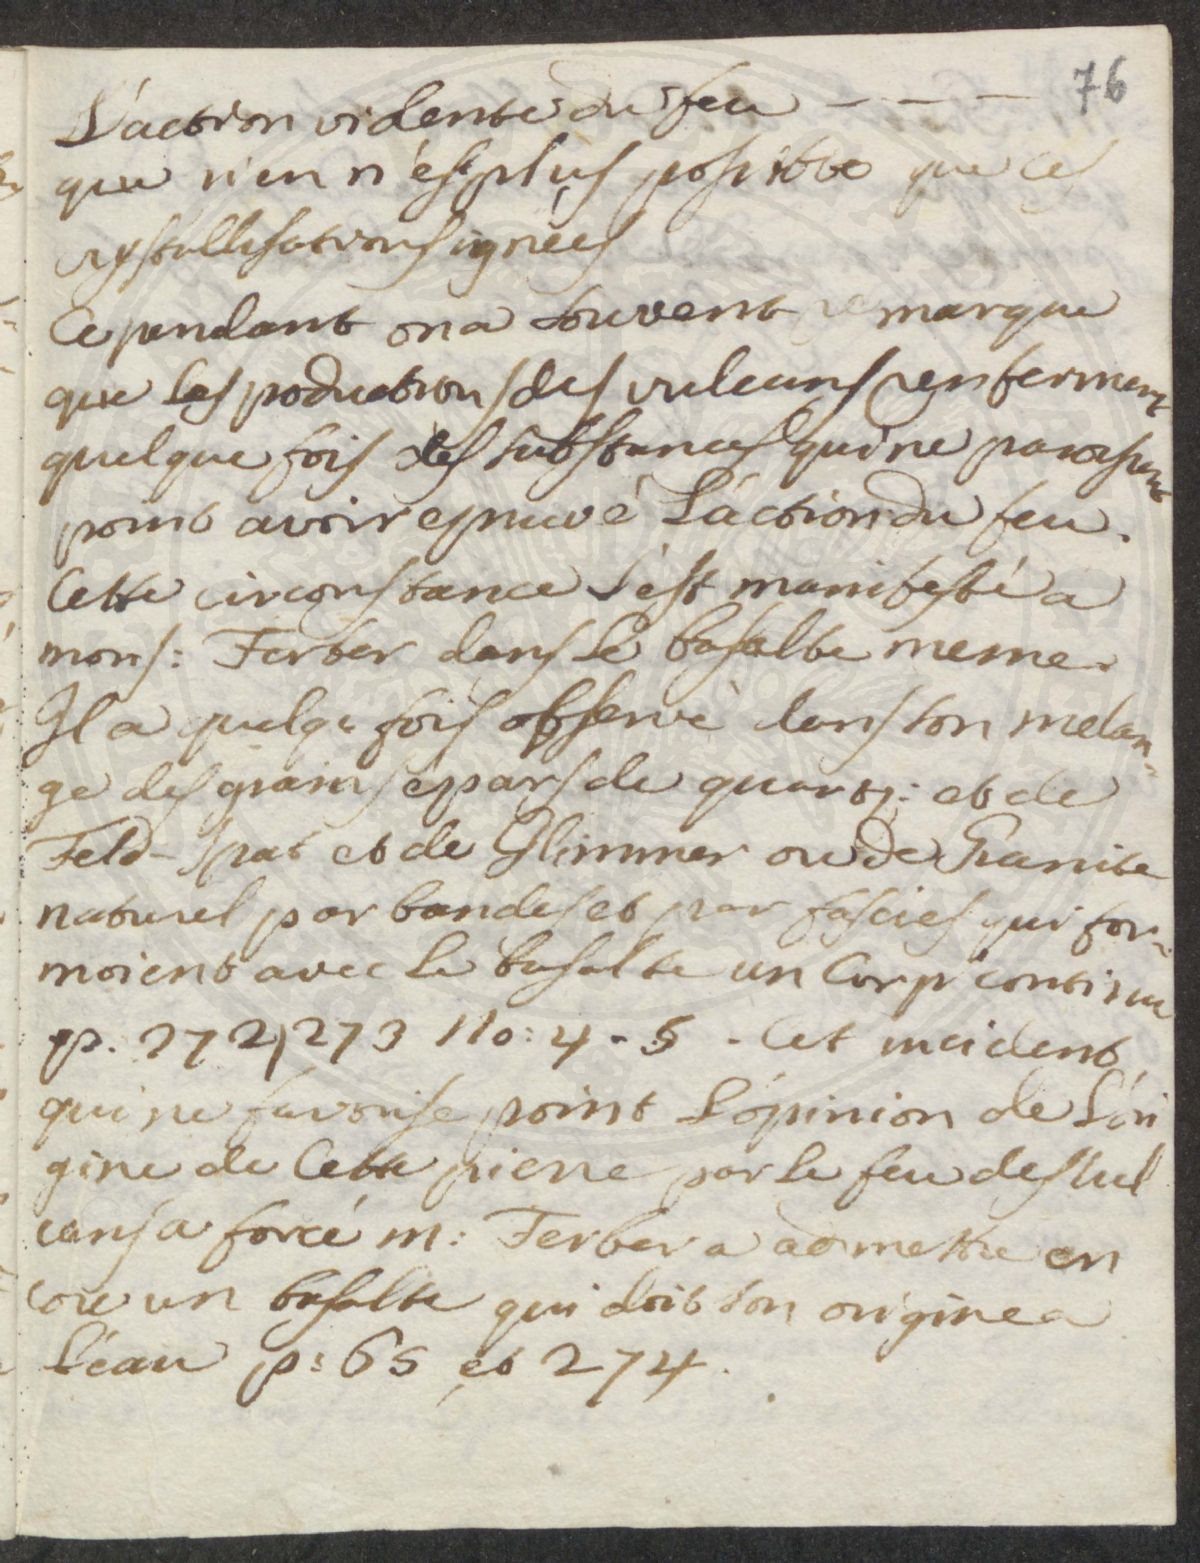 76
L'action violente du feu - - -
que rien n'est plus possible que ces
crystallisations ignées
Cependant on a souvent remarque
que les productions des vulcans renferment
quelque fois des substances qui ne paroissent
point avoir epruvé L'action du feu.
Cette circonstance s'est manifesté a
mons: Ferber dans Le basalte meme.
Il a quelq: fois observé dans son melan-
ge des grains épars de quartz: et de
Feld-spat et de Glimmer ou de Granite
naturel par bandes et par fascies qui for-
moient avec Le basalte un Corp continu
p. 272, 273 No: 4 - 5 - Cet incident
qui ne favorise point L'opinion de L'ori
gine de Cette pierre par Le feu des vul
cans a forcé m: Ferber a admettre en
core un basalte qui doit son origine a
L'eau p: 65 et 274.